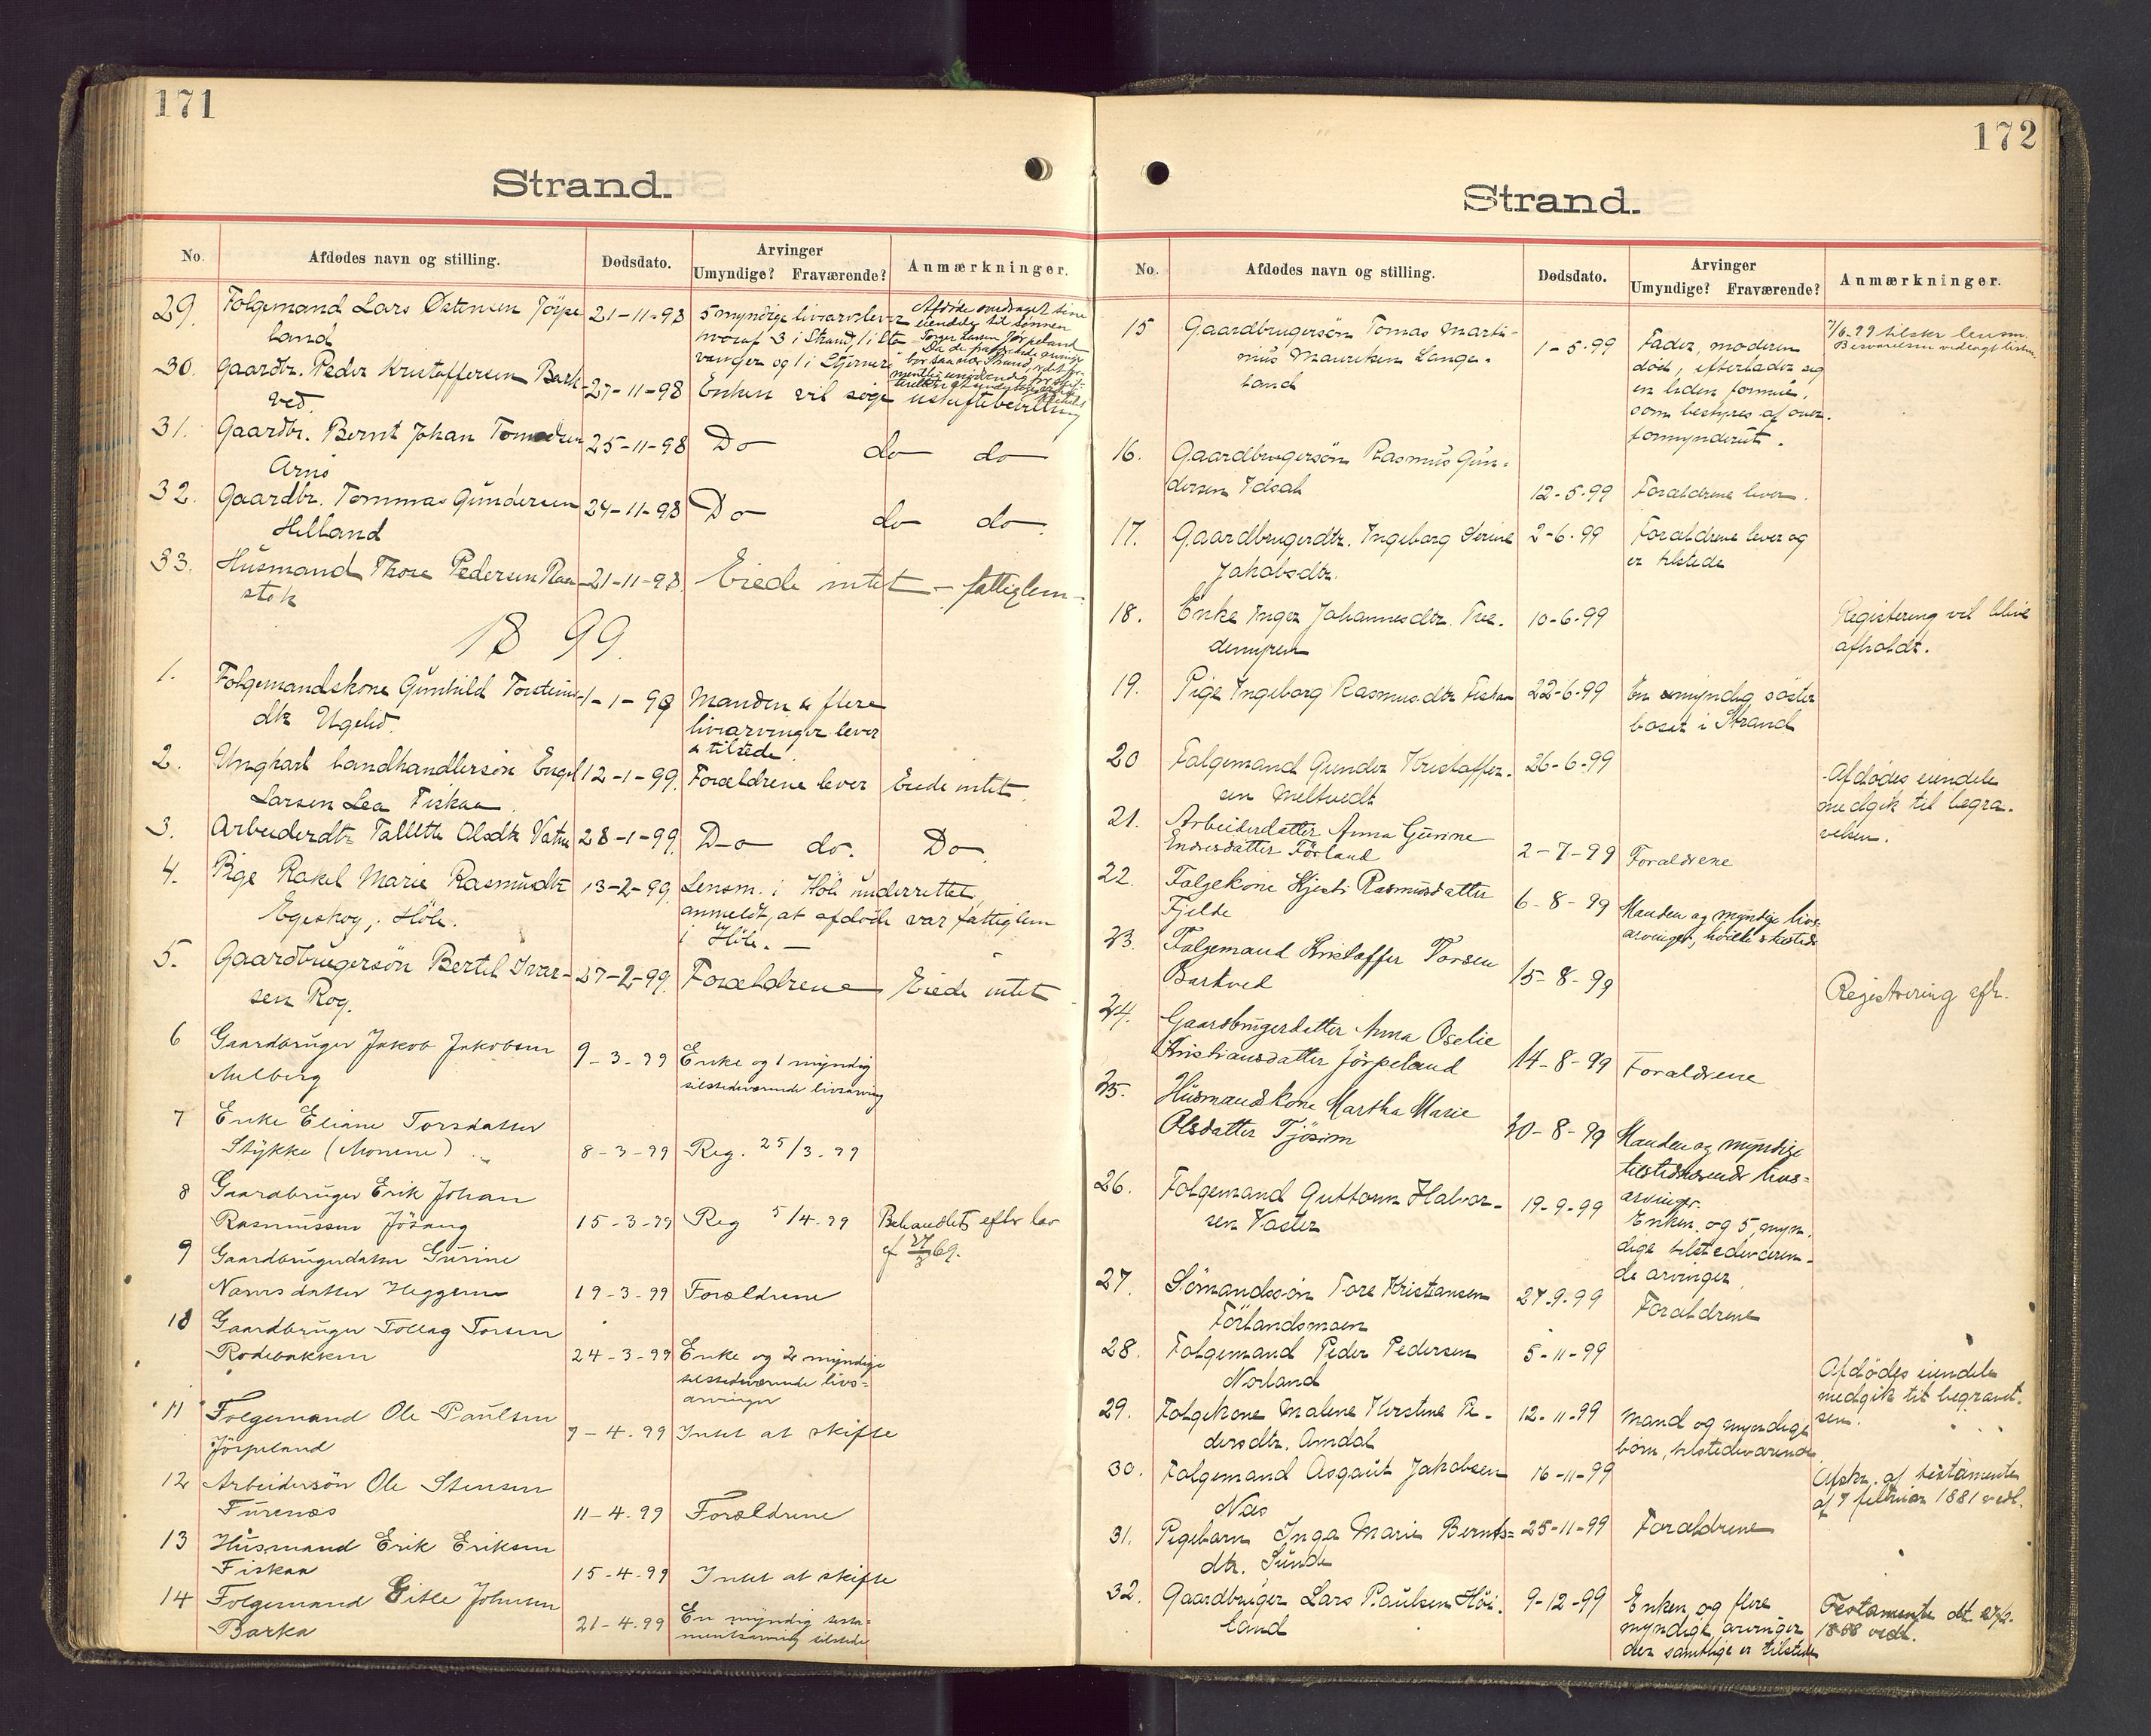 171
Strand.
No. Afdødes navn og stilling. Dødsdato. Arvinger Umyndige? Fraværende? Anmærkninger.
29. Folgemand Lars Østensen Jørpe 21-11-98 5 myndige livsarv. lever Afdøde overdraget sine
land hvoraf 3 i Strand, 1 i eiendele til sønnen
vanger og 1 i Stjernerø Torger Larsen Jørpeland
30. Gaardbr. Peder Kristoffersen Bark- 27-11-98 Enken vil søge uskiftebevilling
ved.
31. Gaardbr. Bernt Johan Tomodsen 25-11-98 Do do do
Arnø
32. Gaardbr. Tommas Gundersen 24-11-98 Do do do.
Helland
33. Husmand Thore Pedersen 21-11-98. Eiede intet - fattiglem-
stok
1899.
1. Folgemandskone Gunhild Torsteins- 1-1-99 Manden & flere
dtr Ugelid. livsarvinger lever
& tilstede
2. Ungkarl landhandlersøn Engel 12-1-99. Forældrene lever Eiede intet.
Larsen Lea Fiskaa.
3. Arbeiderdtr Tallette Olsdtr Vatne 28-1-99. Do do. Do.
4. Pige Rakel Marie Rasmusdtr 13-2-99. Lensm. i Høle underrettet,
Egeskog, Høle. anmeldt, at afdøde var fattiglem
i Høle. -
5. Gaardbrugersøn Bertel Ivar- 27-2-99. Forældrene Eiede intet
sen Rog.
6 Gaardbruger Jakob Jakobsen 9-3-99 Enke og 1 myndig
Aulberg tilstedeværende livsarving
7 Enke Eliane Torsdatter
Stykke (Monene) 8-3-99 Reg. 25/3.99
8 Gaardbruger Erik Johan
Rasmussen Jøsang 15-3-99 Reg 5/4-99 Behandlet efter lov
af 69.
9 Gaardbrugerdatter Gurine
datter Heggem 19-3-99 Forældrene
10 Gaardbruger Tollag Torsen
Rodebakken 24-3-99 Enke og 2 myndige
tilstedeværende livs=
arvinger
11 Folgemand Ole Paulsen
Jørpeland 7-4.99 Intet at skifte
12 Arbeidersøn Ole Stensen
Furenæs 11-4.99 Forældrene
13 Husmand Erik Eriksen
Fiskaa 15-4.99 Intet at skifte
14 Folgemand Gitle Johnsen
Barka 21-4.99 En myndig testa=
mentsarving tilstede
172
Strand.
No. Afdødes navn og stilling. Dødsdato. Arvinger Umyndige? Fraværende? Anmærkninger.
15 Gaardbrugersøn Tomas Marti- 1-5-99 Fader, moderen
nius Mauritsen Lange- død, efterlader sig
land en liden formue,
som bestyres af over-
formynderiet.
7/6.99 tilskr. lensm.
Besvarelsen vedlagt listen.
16. Gaardbrugersøn Rasmus Gun-
dersen Idsal 12-5-99 Forældrene lever.
17. Gaardbrugerdtr. Ingeborg Serine 2-6-99 Forældrene lever og
Jakobsdtr. er tilstede
18. Enke Inger Johannesdtr. Tve- 10-6-99 Registering vil blive
demyren afholdt.
19. Pige Ingeborg Rasmusdtr Fiskaa 22-6-99 En myndig søster
bosat i Strand
20 Folgemand Gunder Kristoffer- 26-6-99 Afdødes eiendele
sen Meltvedt medgik til begra-
velsen.
21. Arbeiderdatter Anna Gurine
Endresdatter Førland 2-7-99 Forældrene
22. Folgekone Kjersti Rasmusdatter 6-8-99 Manden og myndige livs-
Fjelde arvinger, hvilke tilstede
23. Folgemand Kristoffer Torsen
Barkved 15-8-99 Registrering afh.
24. Gaardbrugerdatter Anna Oselie
Kristiansdatter Jørpeland 14-8-99 Forældrene
25. Husmandskone Martha Marie
Olsdatter Tjøsim 30-8-99 Manden og myndige
tilstedeværende livs=
arvinger.
26. Folgemand Guttorm Halvor- 19-9-99 Enken og 5 myn-
sen Vaster dige tilstedeværen-
de arvinger.
27. Sømandssøn Tore Kristansen 27-9-99 Forældrene
Førlandsmoen
28. Folgemand Peder Pedersen 5-11-99 Afdødes eiendele
Norland medgik til begravel-
sen.
29. Folgekone Malene Kirstine Pe- 12-11-99 Mand og myndige
dersdtr. Amdal børn, tilstedeværende
30. Folgemand Asgaut Jakobsen 16-11-99 Afskr. af testamente
Næs af 7 februar 1881 vedl.
31. Pigebarn Inga Marie Bernts= 25-11-99 Forældrene
dtr. Sunde
32. Gaardbruger Lars Paulsen Høi- 9-12-99 Enken og flere Testamente dt.
land myndige arvinger 1868 vedl.
der samtlige er tilstede